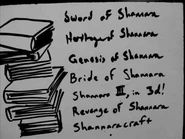 Sword of Shannara
Heritage of Shannara
Genesis of Shannara
Bride of Shannara
Shannara III, in 3d!
Revenge of Shannara
Shannaracraft